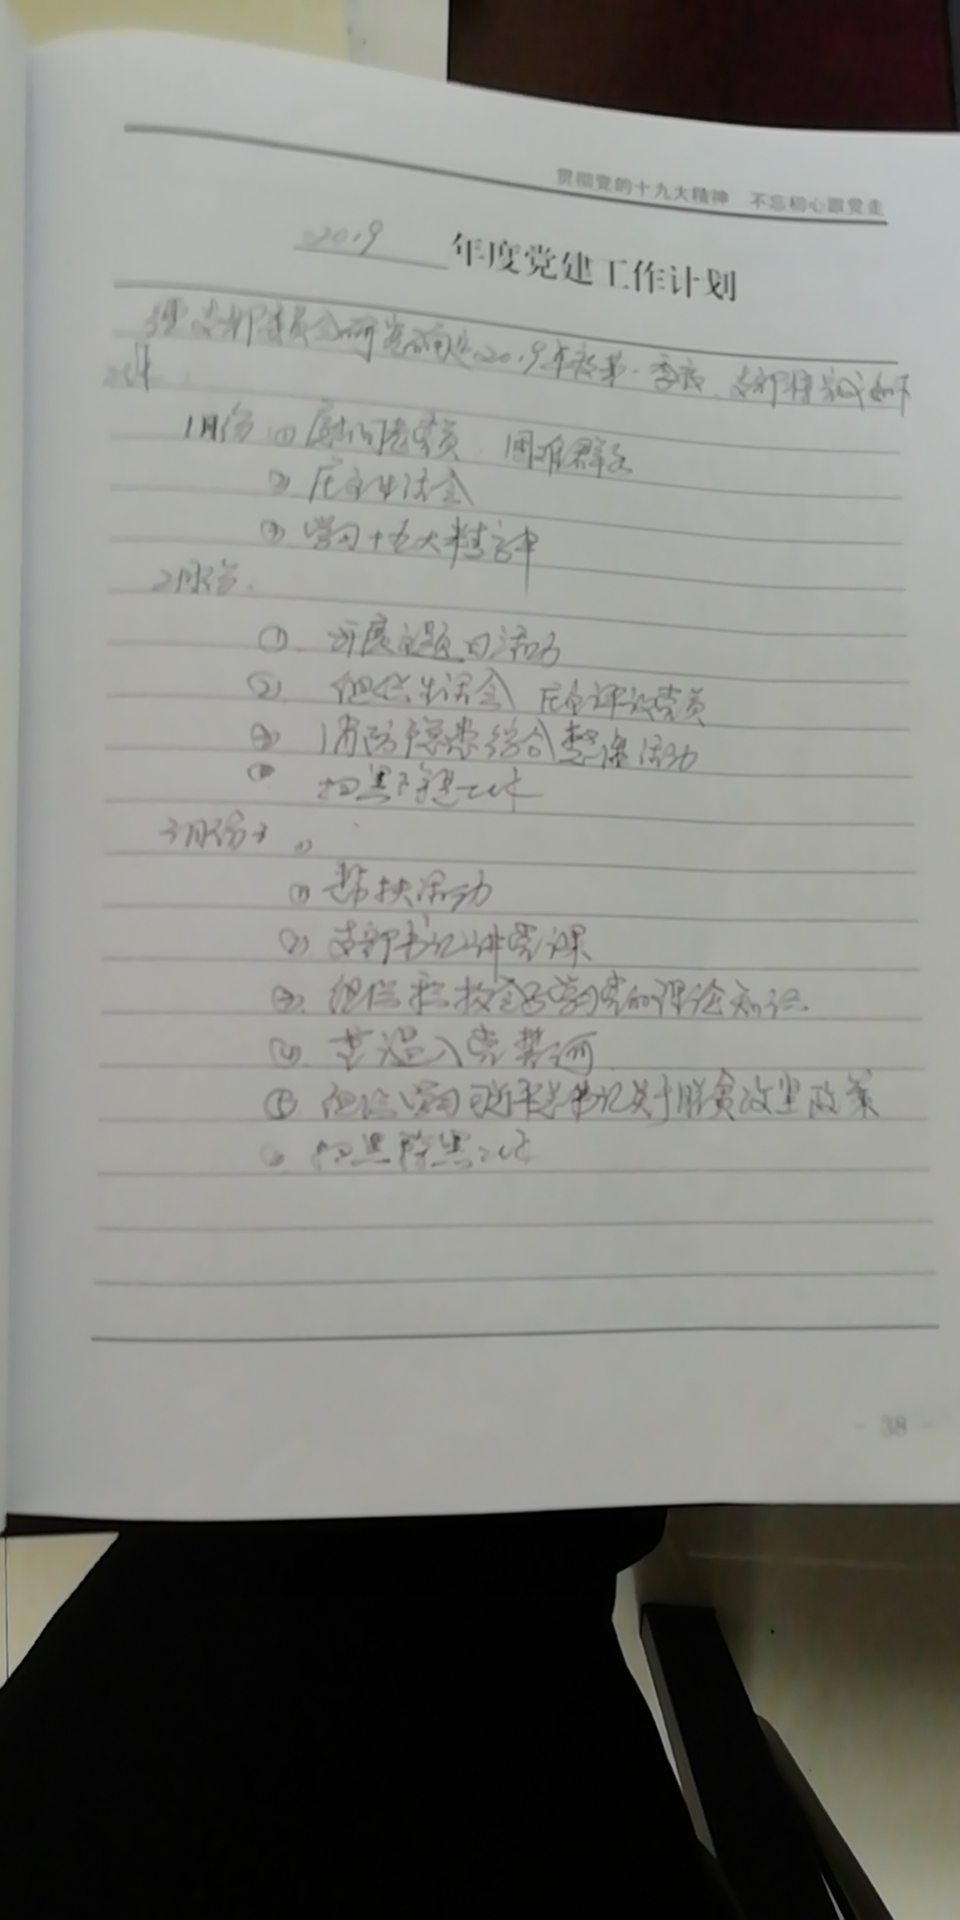 贯彻党的十九大精神 不忘初心跟党走
2019 年度党建工作计划
经支部委员会研究确定2019年度第一季度,支部将完成如下
工作
1月份 ① 慰问老党员 困难群众
② 民主生活会
③ 学习十九大精神
2月份.
① 开展主题日活动
② 组织生活会 民主评议党员
③ 消防隐患综合整治活动
④ 扫黑除恶工作
3月份
① 帮扶活动
② 支部书记讲党课
③ 组织 党的理论知识.
④ 入党
⑤ 组织学习习近平总书记关于脱贫攻坚政策
扫黑除恶工作
- 38 -